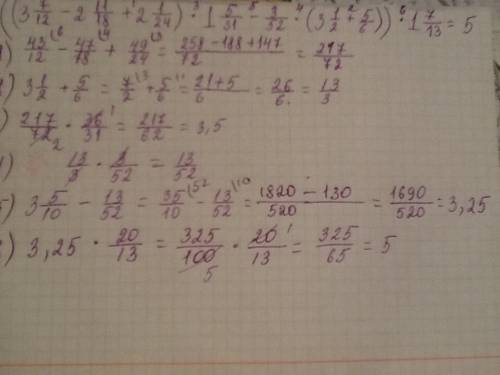 ((3 7/12 - 2 11/18 + 2 1/24) : 1 5/31 - 3/52 · (3 1/2 + 5/6)) · 1 7/13 = 5
) 43/12 - 47/18 + 49/24 = (258 - 188 + 147)/72 = 217/72
) 3 1/2 + 5/6 = 7/2 + 5/6 = (21 + 5)/6 = 26/6 = 13/3
) 217/72 · 36/31 = 217/62 = 3,5
) 13/3 · 3/52 = 13/52
5) 3 5/10 - 13/52 = 35/10 - 13/52 = (1820 - 130)/520 = 1690/520 = 3,25
) 3,25 · 20/13 = 325/100 · 20/13 = 325/65 = 5